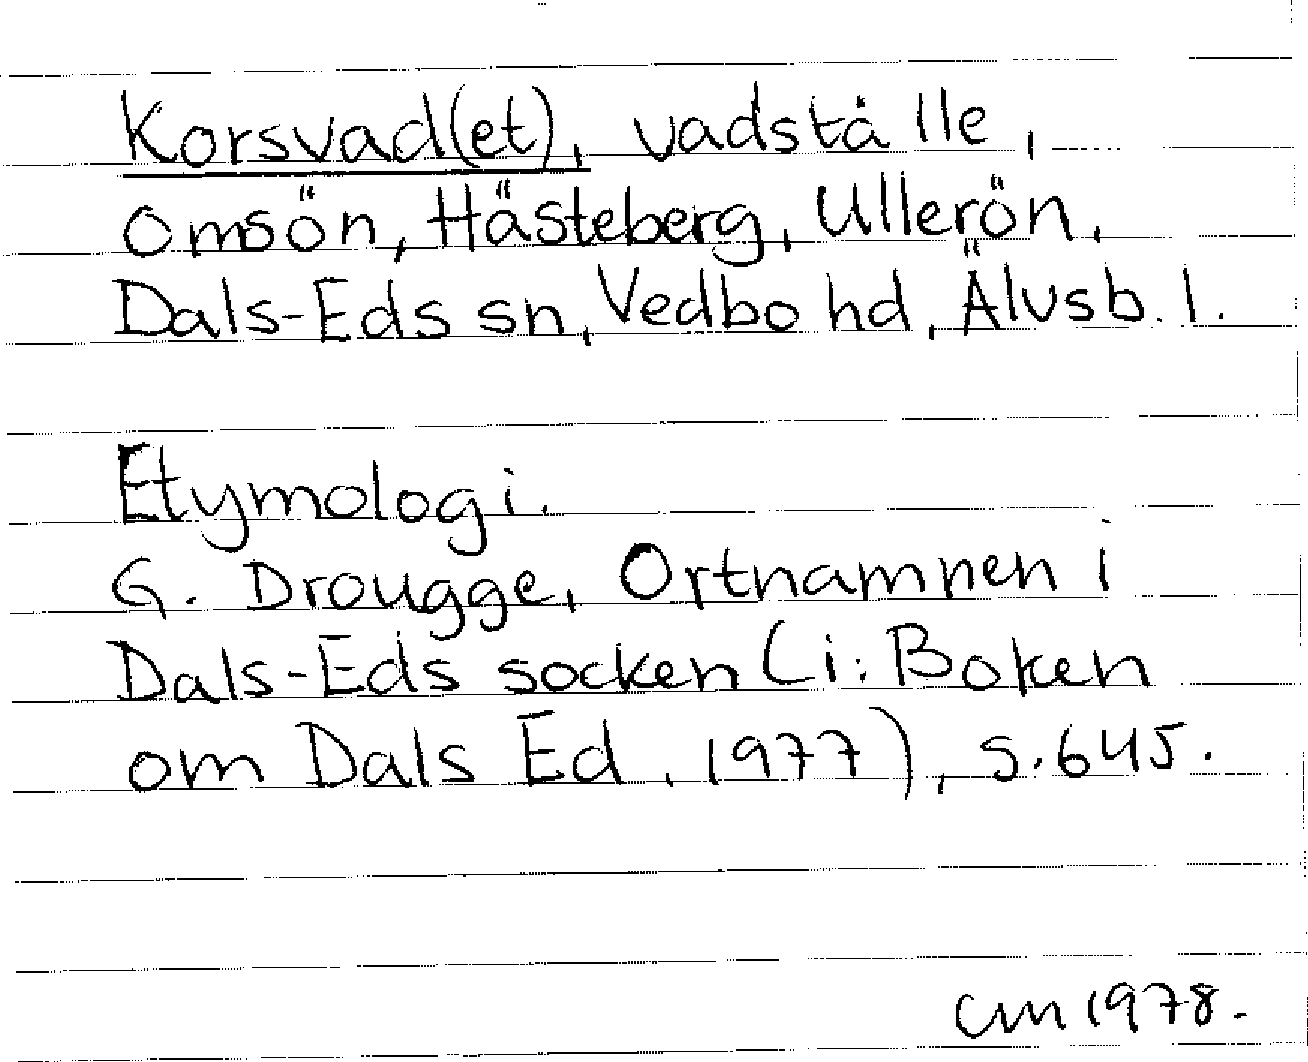 Korsvad(et), vadställe,
Omsön, Hästeberg, Ullerön,
Dals-Eds sn, Vedbo hd, Älvsb. l.
Etymologi.
G. Drougge, Ortnamnen i
Dals-Eds socken (i: Boken
om Dals Ed, 1977), s. 645.
CM 1978.